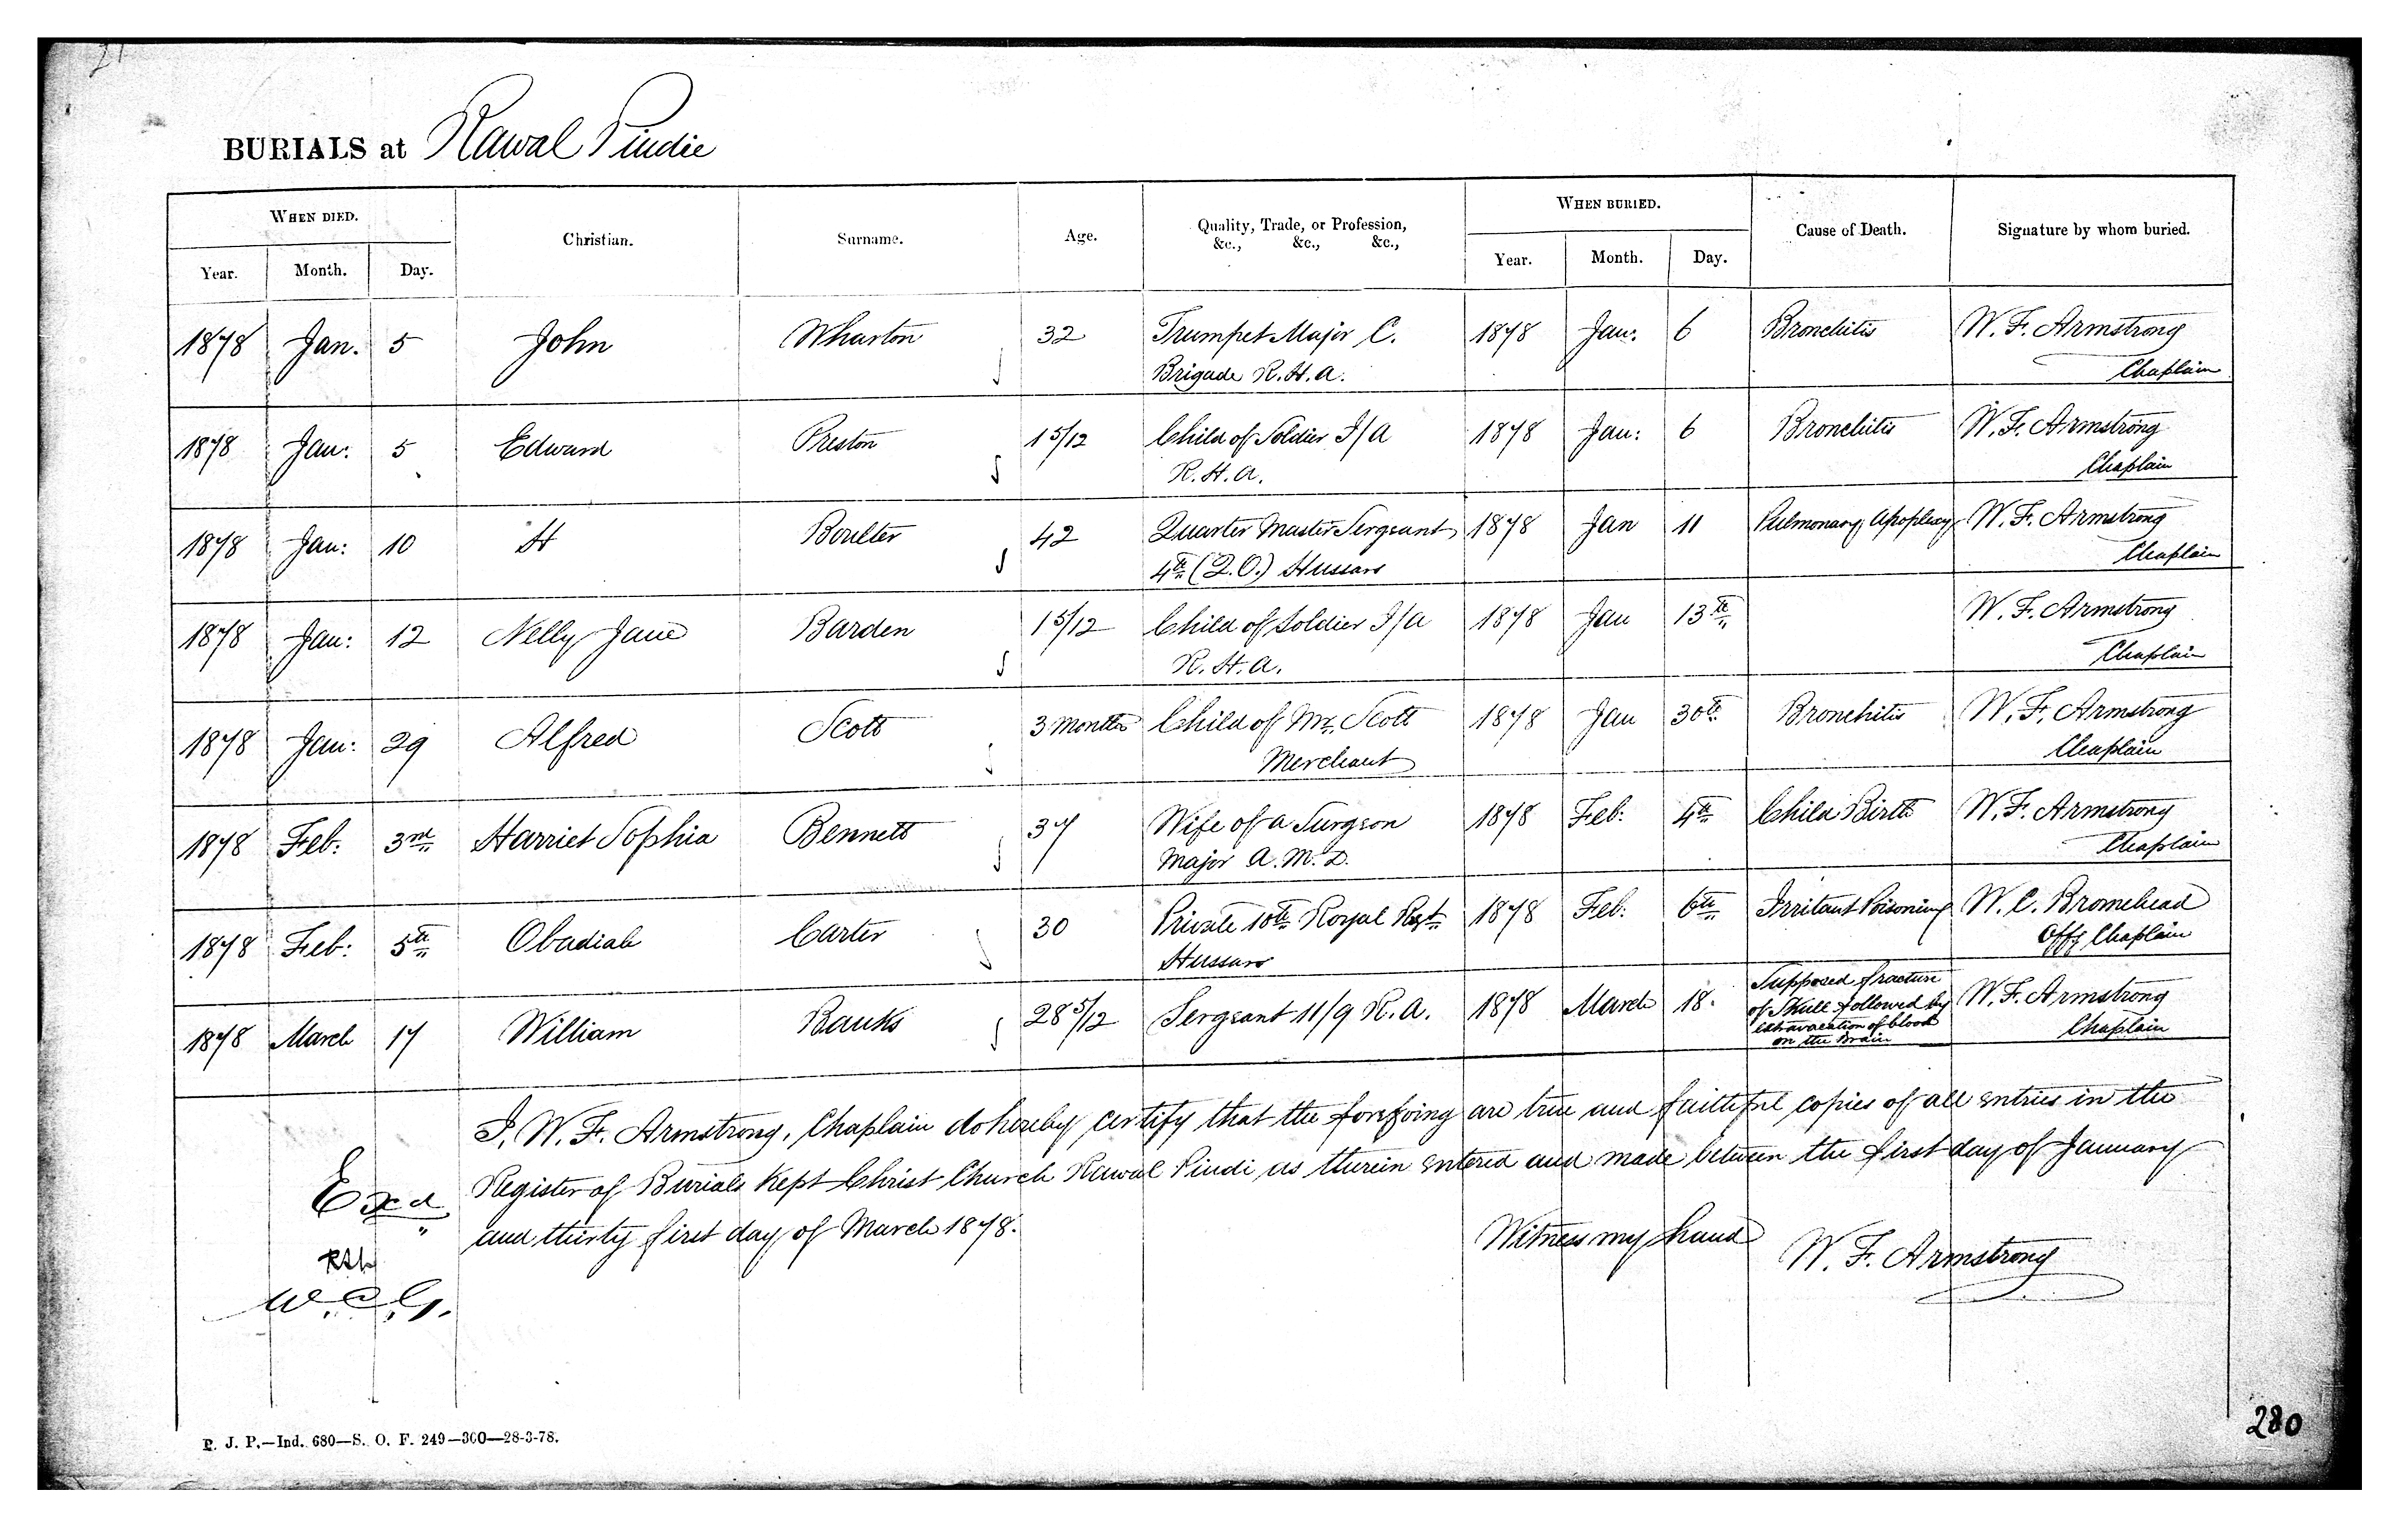 21
BURIALS at Rawal Pindie
WHEN DIED. Christian. Surname. Age. Quality, Trade, or Profession, &c., &c., &c., WHEN BURIED. Cause of Death. Signature by whom buried.
Year. Month. Day. Year. Month. Day.
1878 Jan. 5 John Wharton 32 Trumpet Major C. 1878 Jan: 6 Bronchitis W. F. Armstrong
Brigade R.H.A. Chaplain
1878 Jan: 5 Edward Preston 1 5/12 Child of Soldier I/A 1878 Jan: 6 Bronchitis W. F. Armstrong
R.H.A. Chaplain
1878 Jan: 10 H Boulter 42 Quarter Master Sergeant 1878 Jan 11 Pulmonary Apoplexy W. F. Armstrong
4th (Q.O.) Hussars Chaplain
1878 Jan: 12 Nelly Jane Barden 1 5/12 Child of Soldier I/A 1878 Jan 13th W. F. Armstrong
R.H.A. Chaplain
1878 Jan: 29 Alfred Scott 3 Months Child of Mr. Scott 1878 Jan 30th Bronchitis W. F. Armstrong
Merchant Chaplain
1878 Feb: 3rd Harriet Sophia Bennett 37 Wife of a Surgeon 1878 Feb: 4th Child Birth W. F. Armstrong
Major A.M.D. Chaplain
1878 Feb: 5th Obadiah Carter 30 Private 10th Royal Regt 1878 Feb: 6th Irritant Poisoning W. C. Bromehead
Hussars Offg Chaplain
1878 March 17 William Banks 28 5/12 Sergeant 11/9 R.A. 1878 March 18. Supposed fracture W. F. Armstrong
of Skull followed by Chaplain
extravacation of blood
on the Brain
I, W. F. Armstrong, Chaplain do hereby certify that the foregoing are true and faithful copies of all entries in the
Register of Burials Kept Christ Church Rawal Pindi as therein entered and made between the first day of January
and thirty first day of March 1878.
Witness my hand W. F. Armstrong
Exd
W.C.G.
P. J. P.—Ind. 680—S. O. F. 249—300—28-3-78.
280